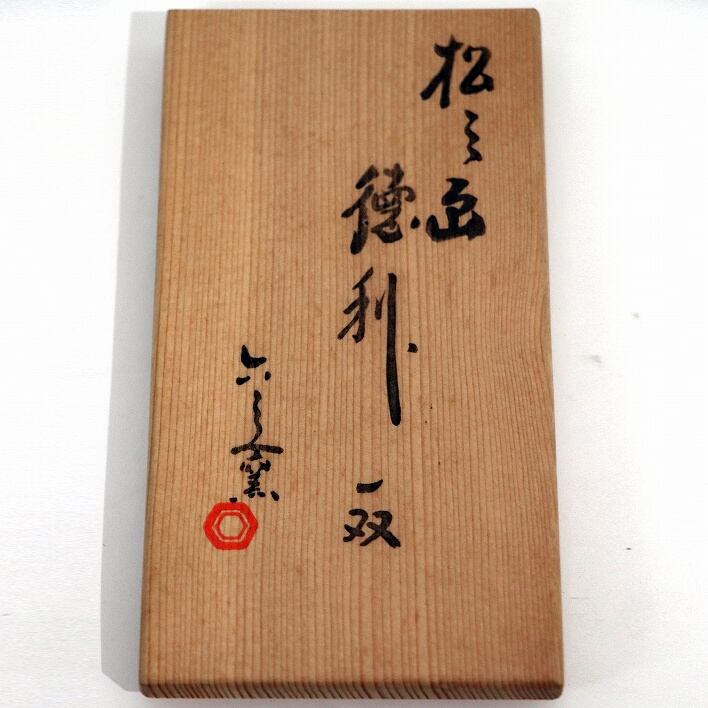 松之画
徳利 一双
六之窯